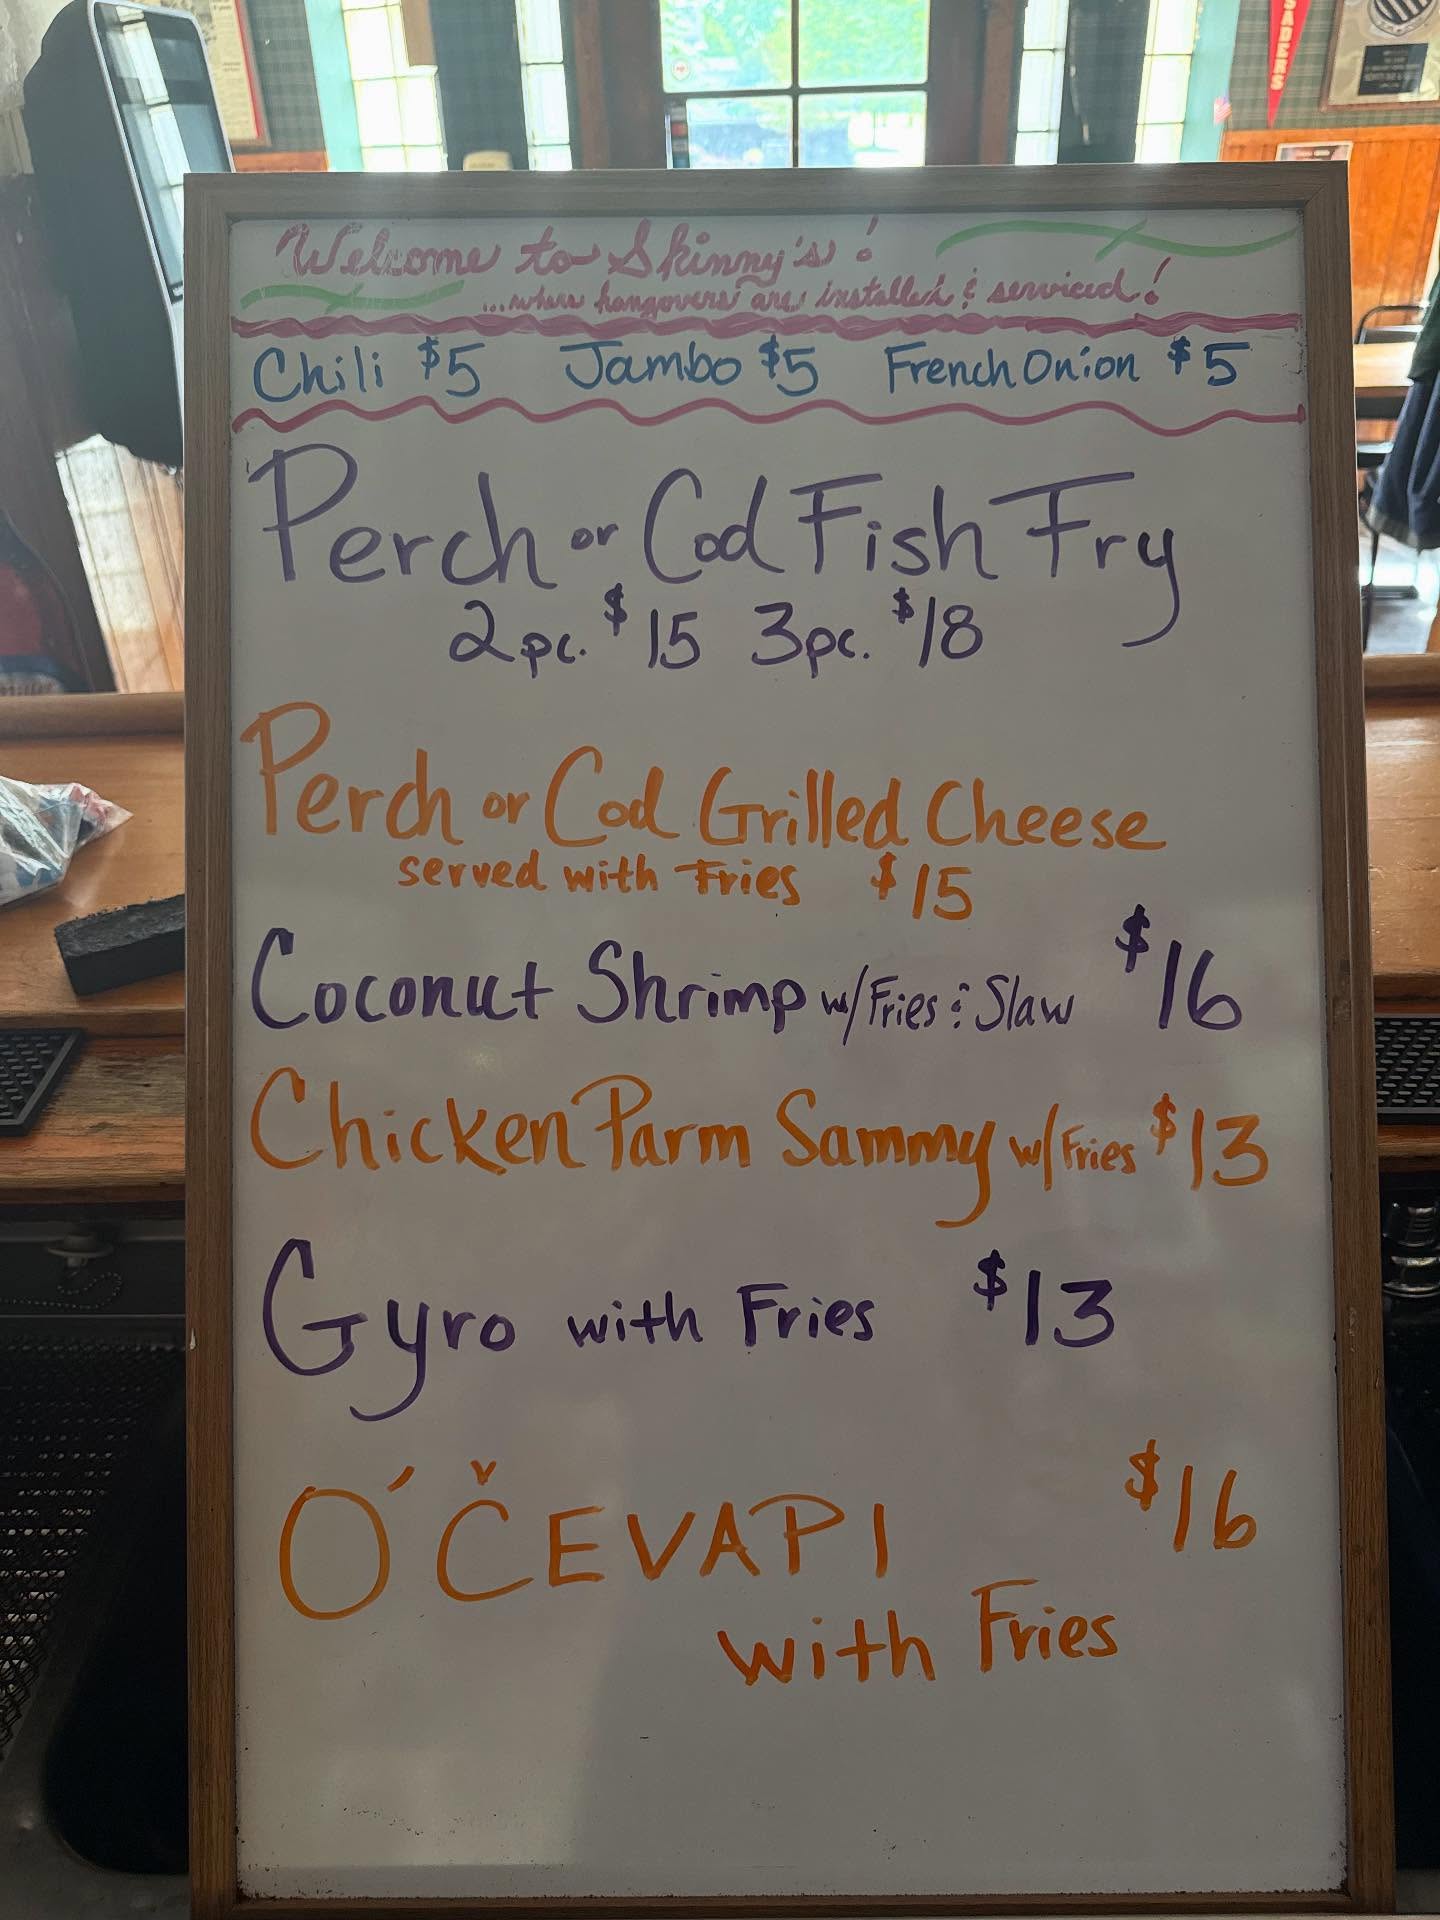 Welcome to Skinny's!
...where hangovers are installed & serviced!
Chili $5 Jambo $5 French Onion $5
Perch or Cod Fish Fry
2pc. $15 3pc. $18
Perch or Cod Grilled Cheese
served with Fries $15
Coconut Shrimp w/Fries & Slaw $16
Chicken Parm Sammy w/Fries $13
Gyro with Fries $13
O'ČEVAPI $16
with Fries